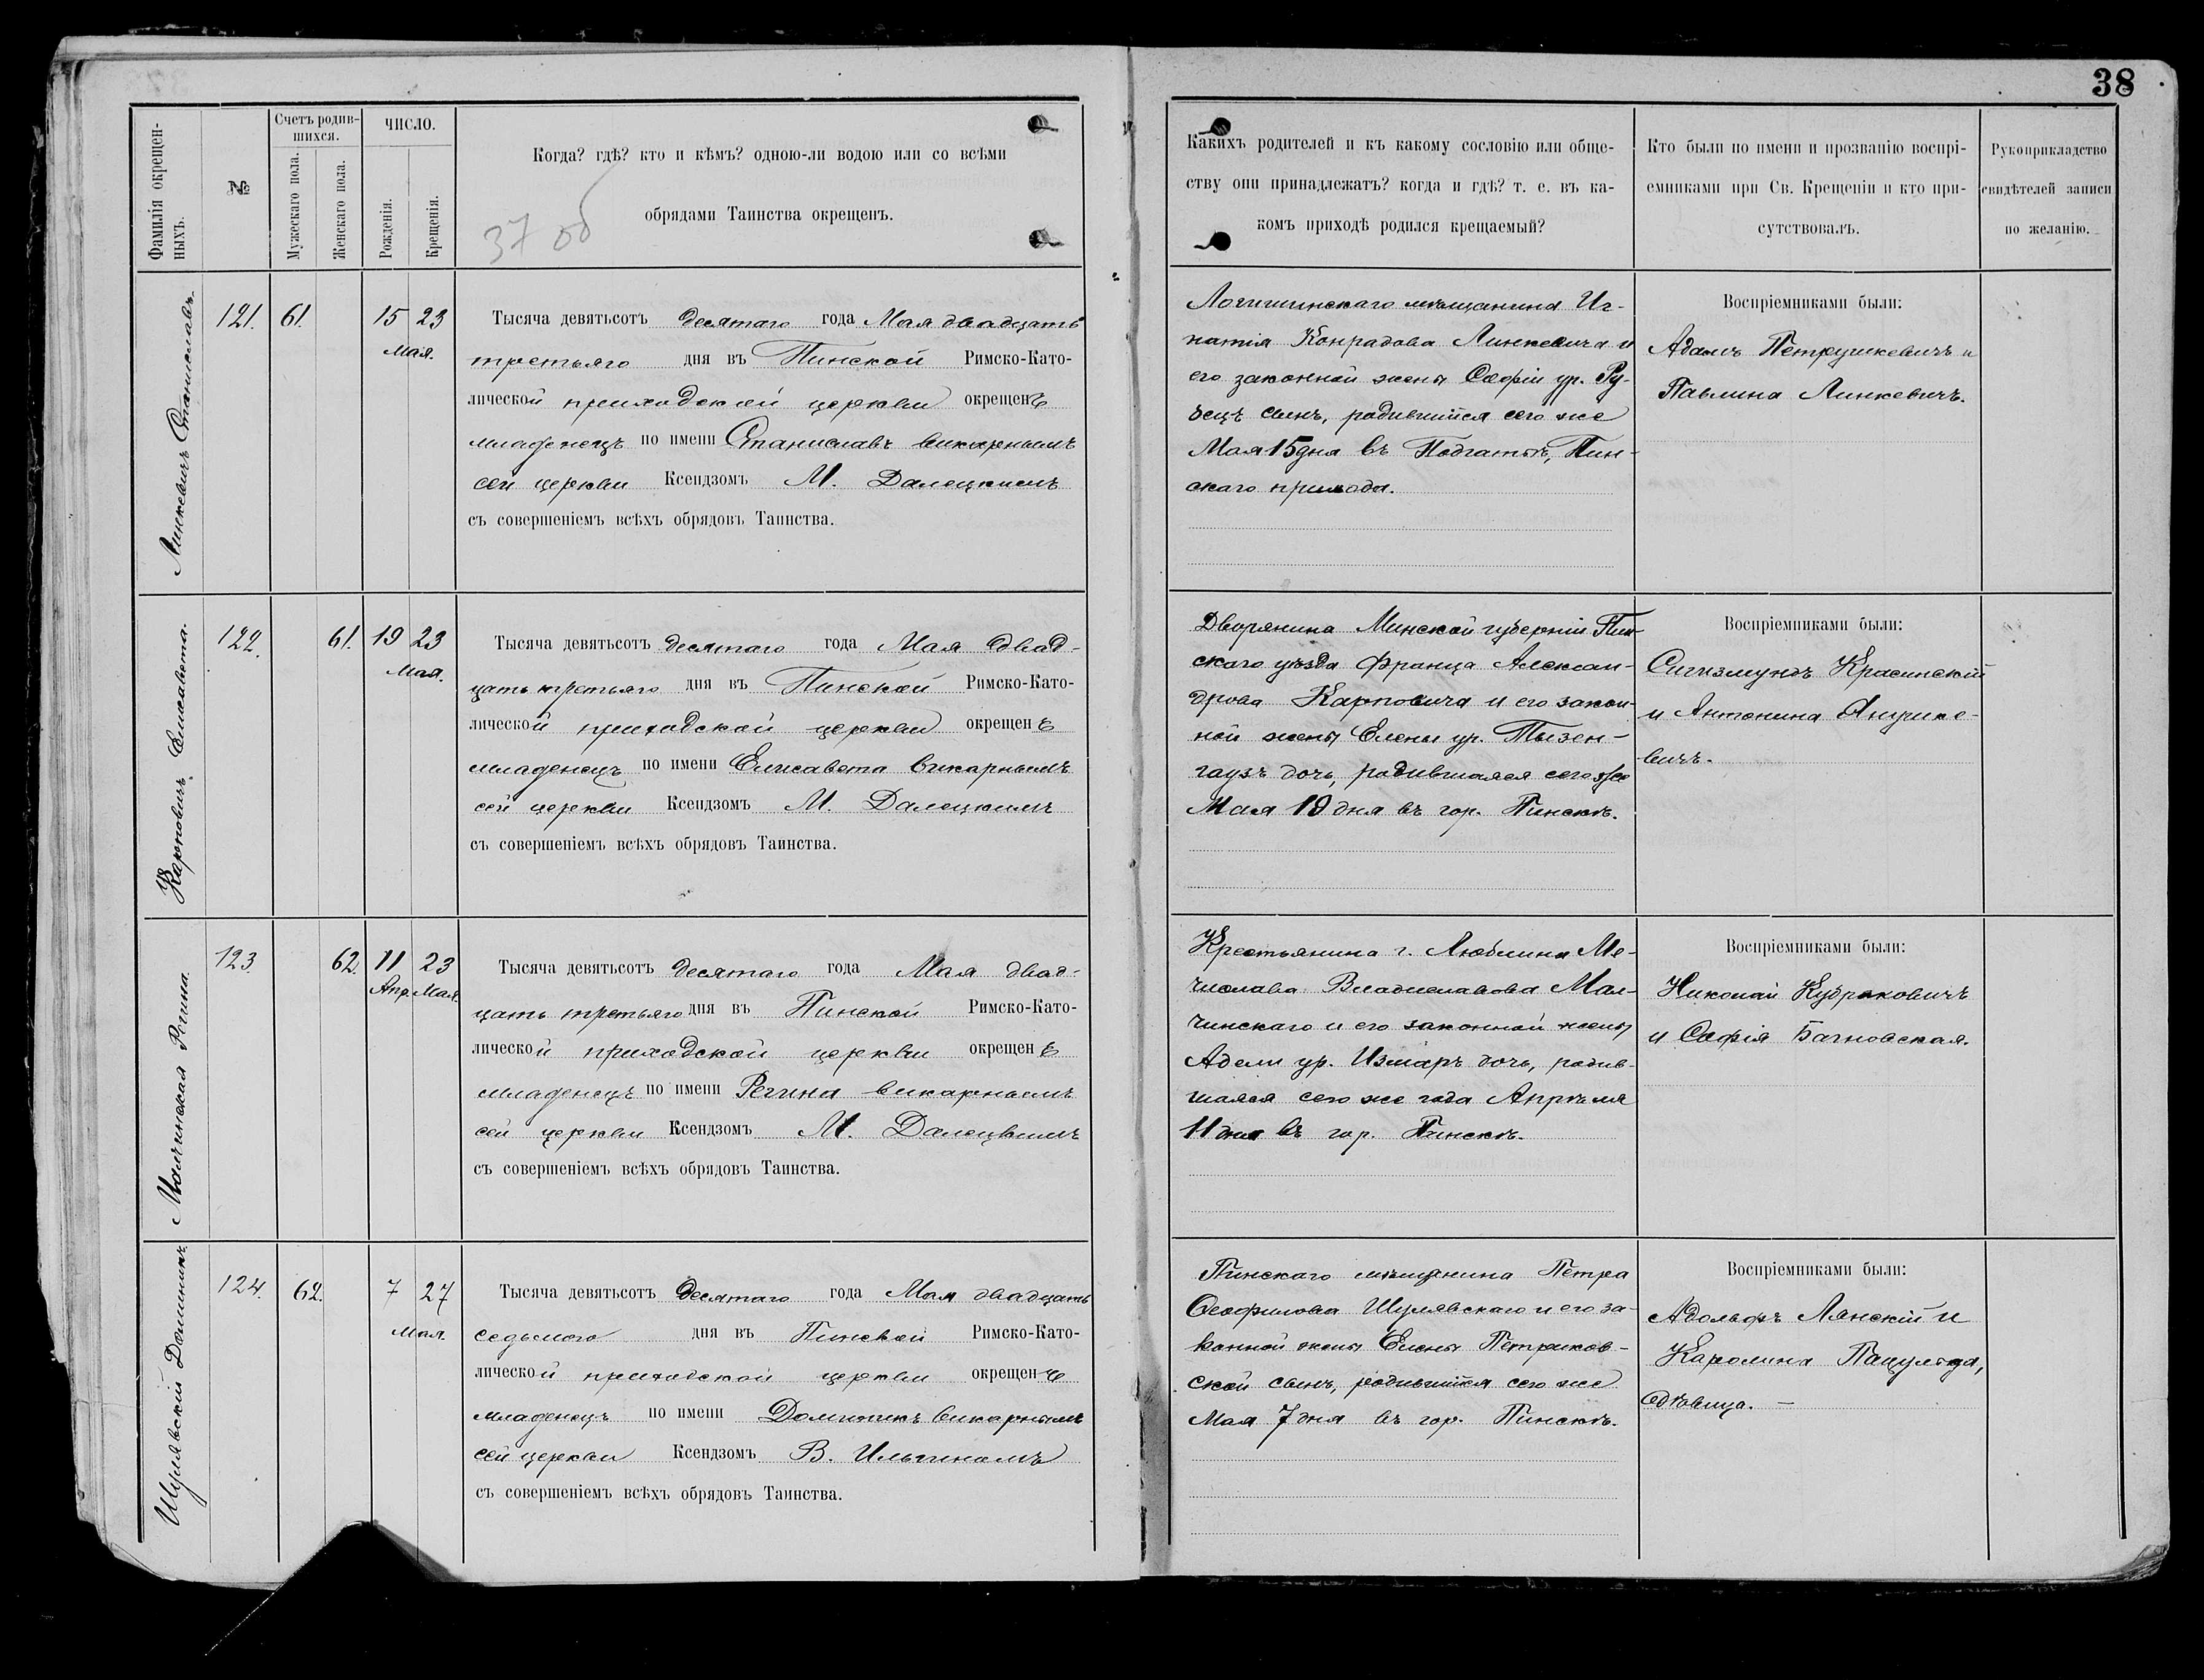 38
Фамилія окрещен-
ныхъ.
№
Счетъ родив-
шихся.
Мужескаго пола.
Женскаго пола.
ЧИСЛО.
Рожденія.
Крещенія.
Когда? гдѣ? кто и кѣмъ? одною-ли водою или со всѣми
обрядами Таинства окрещенъ.
37 об
Какихъ родителей и къ какому сословію или обще-
ству они принадлежатъ? когда и гдѣ? т. е. въ ка-
комъ приходѣ родился крещаемый?
Кто были по имени и прозванію воспрі-
емниками при Св. Крещеніи и кто при-
сутствовалъ.
Рукоприкладство
свидѣтелей записи
по желанію.
Линкевичъ Станиславъ.
121. 61. 15 23
Мая.
Тысяча девятьсотъ десятаго года Мая двадцать
третьяго дня въ Пинской Римско-Като-
лической приходской церкви окрещенъ
младенецъ по имени Станиславъ викарнымъ
сей церкви Ксендзомъ М. Далецкимъ
съ совершеніемъ всѣхъ обрядовъ Таинства.
Логишинскаго мѣщанина Иг-
натія Конрадова Линкевича и
его законной жены Софіи ур. Ру-
бецъ сынъ, родившійся сего же
Мая 15 дня въ Подгатьѣ, Пин-
скаго прихода.
Воспріемниками были:
Адамъ Петрушкевичъ и
Павлина Линкевичъ.
Карповичъ Елисавета.
122. 61. 19 23
Мая.
Тысяча девятьсотъ десятаго года Мая двад-
цать третьяго дня въ Пинской Римско-Като-
лической приходской церкви окрещенъ
младенецъ по имени Елисавета викарнымъ
сей церкви Ксендзомъ М. Далецкимъ
съ совершеніемъ всѣхъ обрядовъ Таинства.
Дворянина Минской губерніи Пин-
скаго уѣзда Франца Алексан-
дрова Карповича и его закон-
ной жены Елены ур. Тызен-
гаузъ дочь, родившаяся сего же
Мая 19 дня въ гор. Пинскѣ.
Воспріемниками были:
Сигизмундъ Красинскій
и Антонина
вичъ.
Малчинская Регина.
123. 62. 11 23
Апр. Мая.
Тысяча девятьсотъ десятаго года Мая двад-
цать третьяго дня въ Пинской Римско-Като-
лической приходской церкви окрещенъ
младенецъ по имени Регина викарнымъ
сей церкви Ксендзомъ М. Далецкимъ
съ совершеніемъ всѣхъ обрядовъ Таинства.
Крестьянина г. Люблина Ме-
числава Владиславова Мал-
чинскаго и его законной жены
Адели ур. Измаръ дочь, родив-
шаяся сего же года Апрѣля
11 дня въ гор. Пинскѣ.
Воспріемниками были:
Николай Кудраковичъ
и Софія Багновская.
Шулявскій Доминикъ
124. 62. 7 27
Мая.
Тысяча девятьсотъ десятаго года Мая двадцать
седьмого дня въ Пинской Римско-Като-
лической приходской церкви окрещенъ
младенецъ по имени Доминикъ викарнымъ
сей церкви Ксендзомъ В. Ильгиномъ
съ совершеніемъ всѣхъ обрядовъ Таинства.
Пинскаго мѣщанина Петра
Ѳеофилова Шулявскаго и его за-
конной жены Елены Петриков-
ской сынъ, родившійся сего же
Мая 7 дня въ гор. Пинскѣ.
Воспріемниками были:
Адольфъ Лянскій и
Каролина
вдовица. —